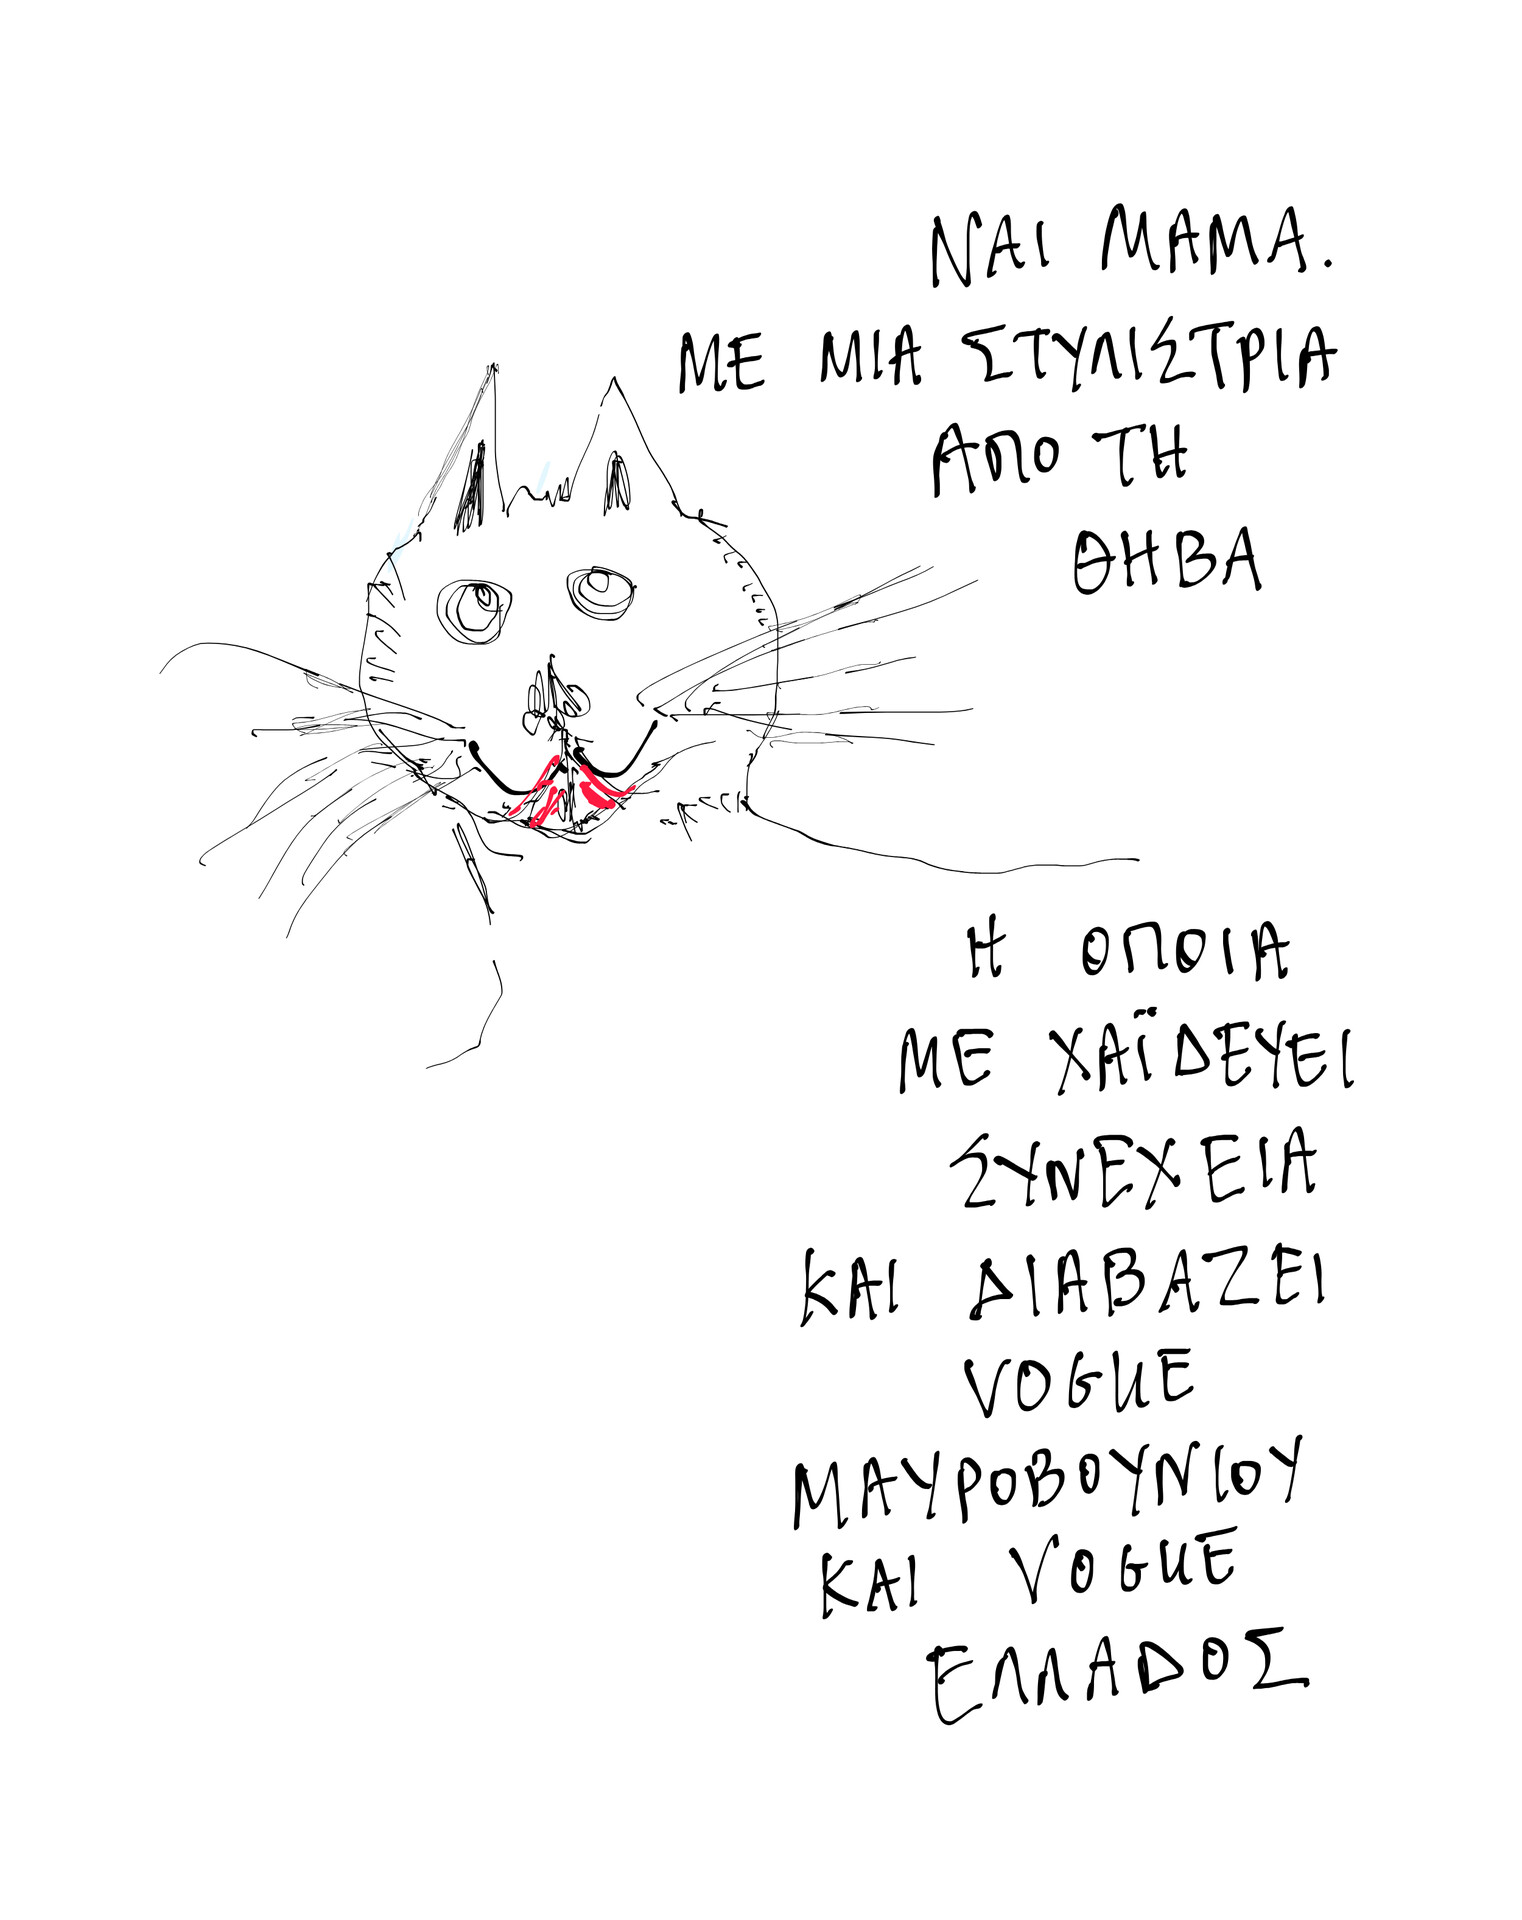 ΝΑΙ ΜΑΜΑ.
ΜΕ ΜΙΑ ΣΤΥΛΙΣΤΡΙΑ
ΑΠΟ ΤΗ
ΘΗΒΑ
Η ΟΠΟΙΑ
ΜΕ ΧΑΪΔΕΥΕΙ
ΣΥΝΕΧΕΙΑ
ΚΑΙ ΔΙΑΒΑΖΕΙ
VOGUE
ΜΑΥΡΟΒΟΥΝΙΟΥ
ΚΑΙ VOGUE
ΕΛΛΑΔΟΣ